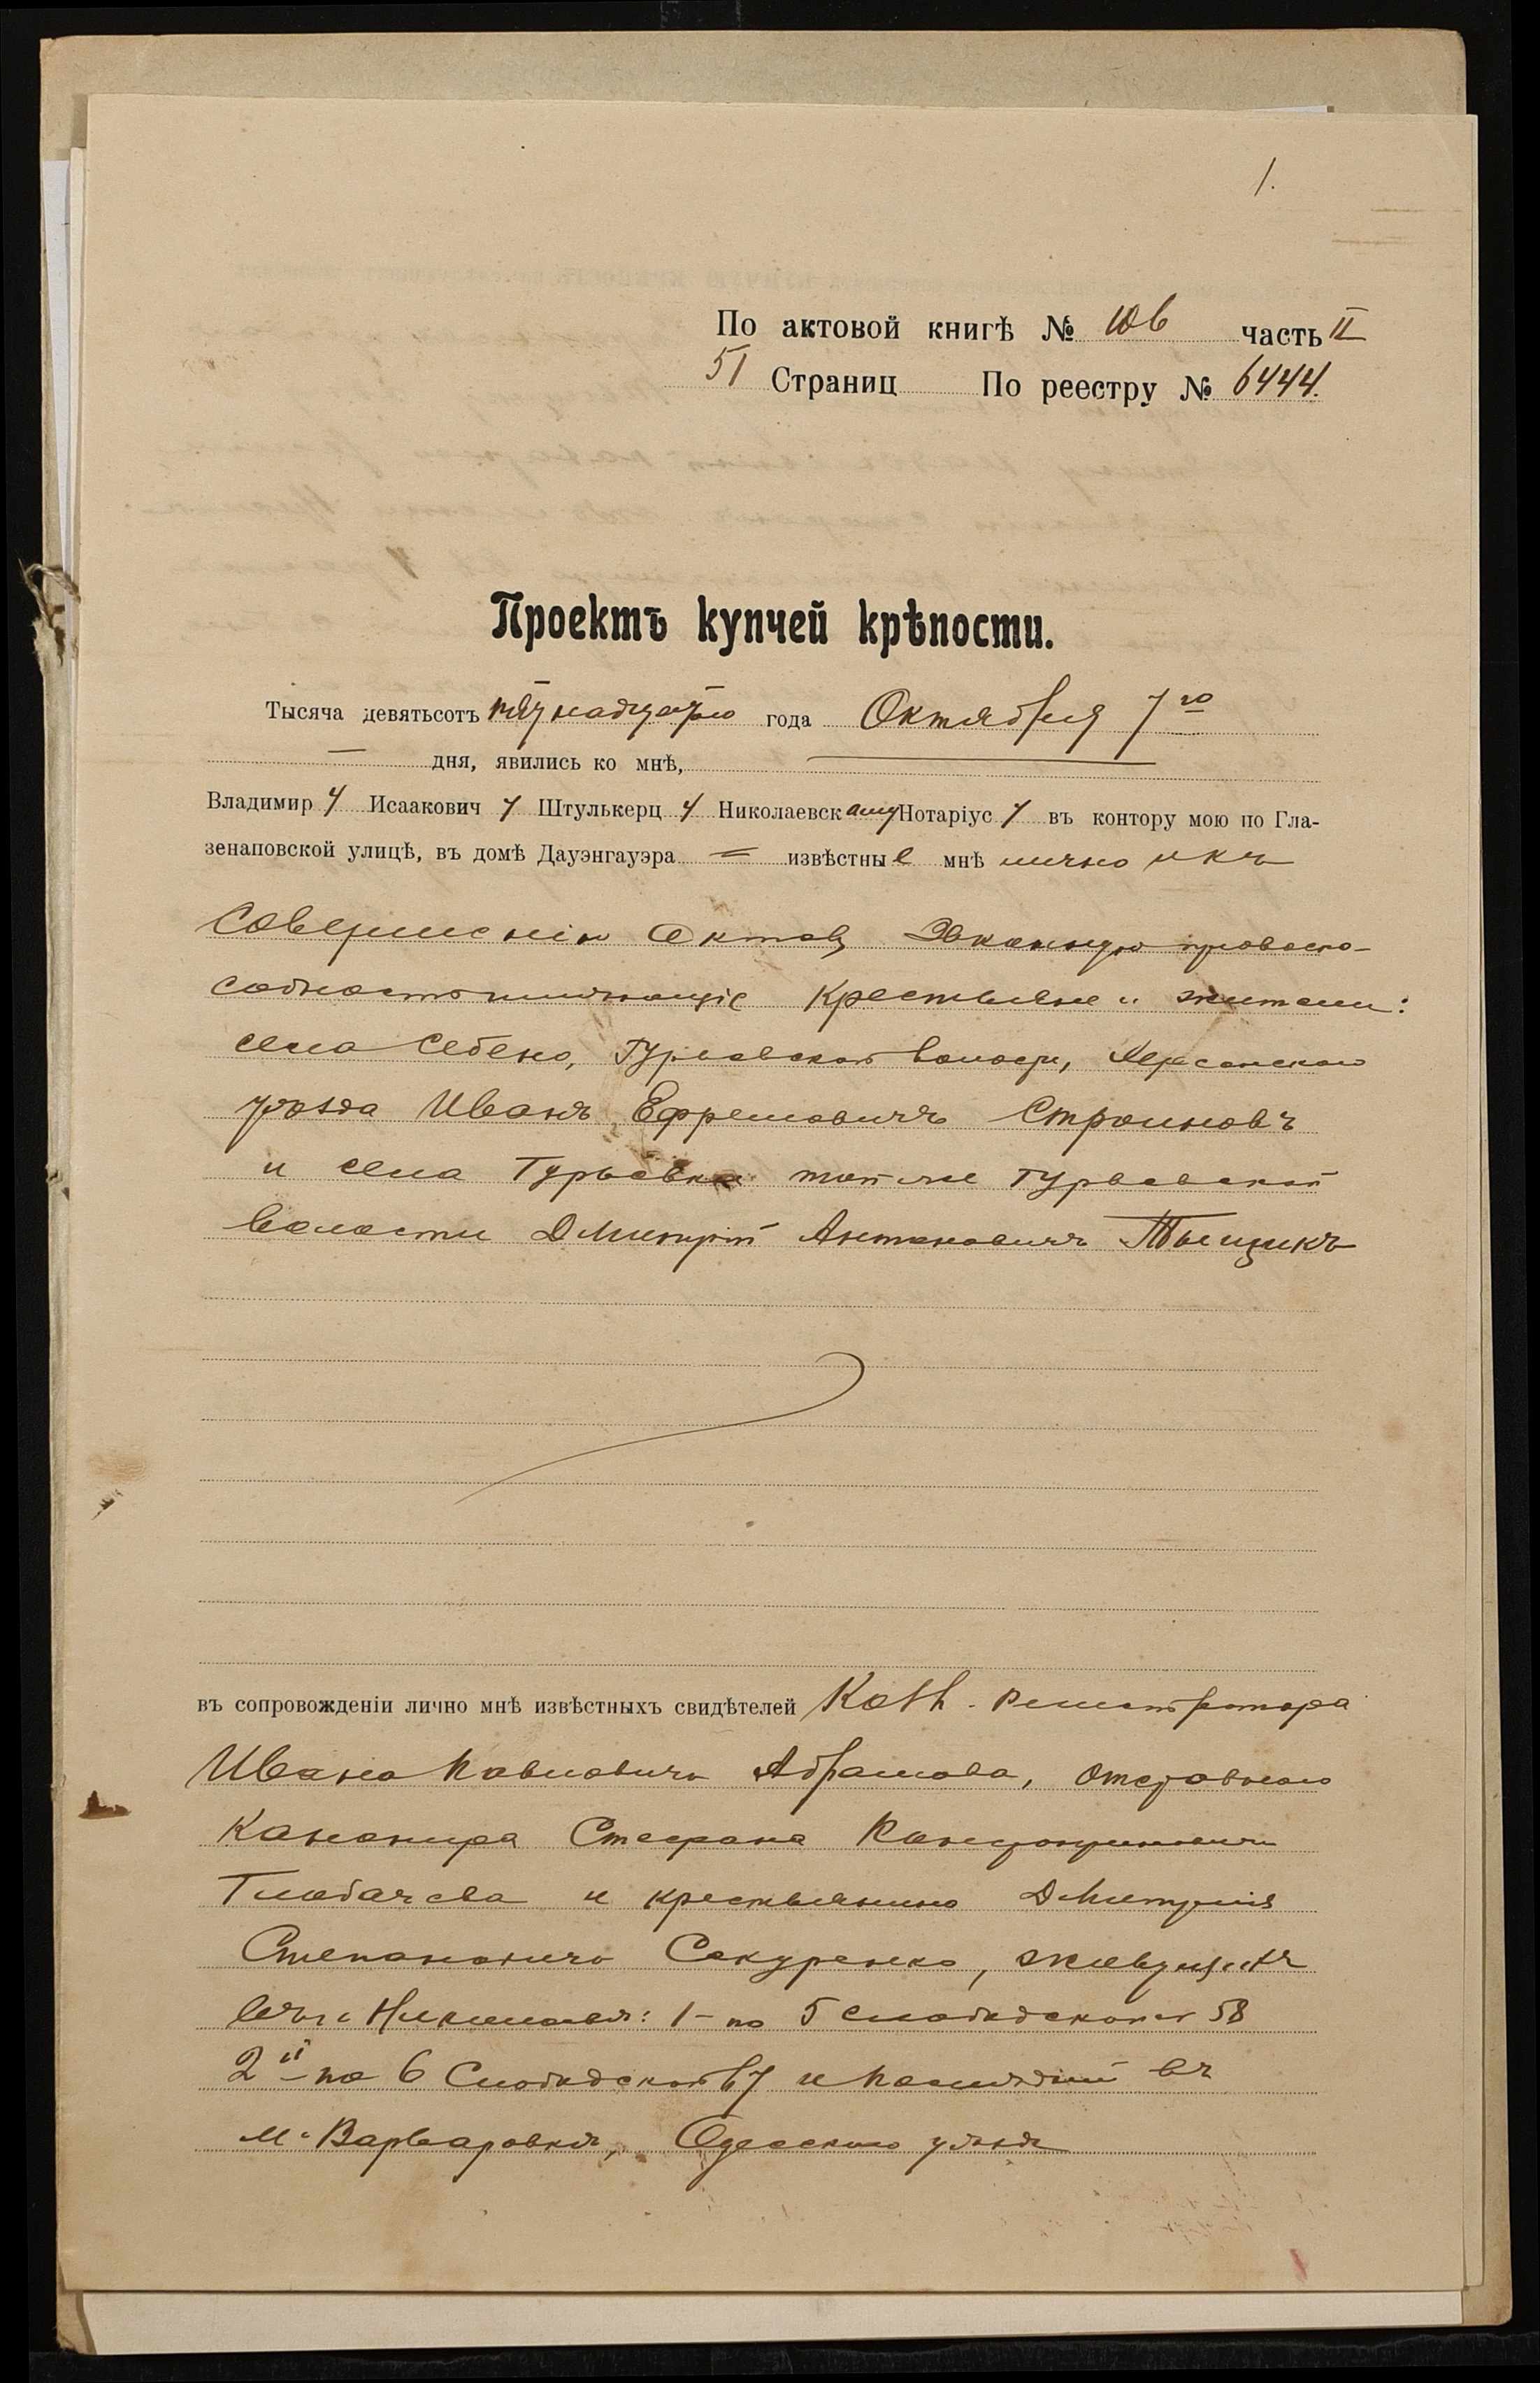 1.
По актовой книгѣ № 106 часть II
51 Страниц По реестру № 6444.
Проектъ купчей крѣпости.
Тысяча девятьсотъ пятнадцатаго года Октября 7го
дня, явились ко мнѣ,
Владимиру Исааковичу Штулькерцу Николаевскому Нотаріусу въ контору мою по Гла-
зенаповской улицѣ, въ домѣ Дауэнгауэра извѣстные мнѣ лично и къ
совершенію актовъ законную правоспо-
собность имѣющіе крестьяне и жители:
села Себено, Гурьевской волости, Херсонскаго
уѣзда Иванъ Ефремовичъ Строиновъ
и села Гурьевки той же Гурьевской
волости Дмитрій Антоновичъ
въ сопровожденіи лично мнѣ извѣстныхъ свидѣтелей Колл. Регистратора
Ивана Павловича Абрамова, отставного
канонира Стефана
и крестьянина Дмитрія
Степановича Секуренко, живущихъ
въ г. Николаевѣ: 1- по 5 Слободской 58
2й по 6 Слободской 67 и послѣдній въ
м. Варваровкѣ, Одесскаго уѣзда